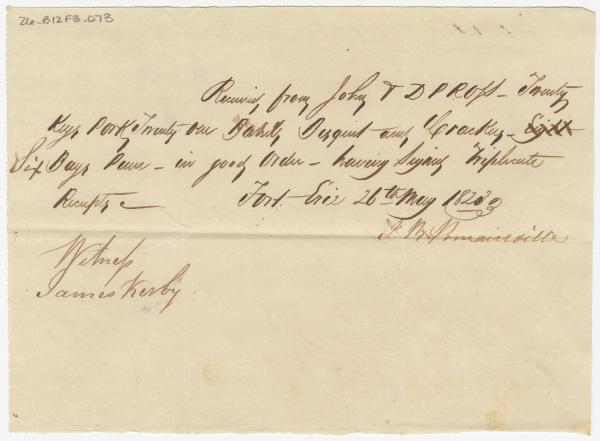 26-B12F3-073
Received from John & D P Ross - Twenty
Kegs Pork Twenty one Barrels Bisquit and Cracker - Eight
Six Bags Pease - in good Order - having Signed Triplicate
Receipts - Fort Erie 26th May 182
J B Romainville
Witness
James Kerby